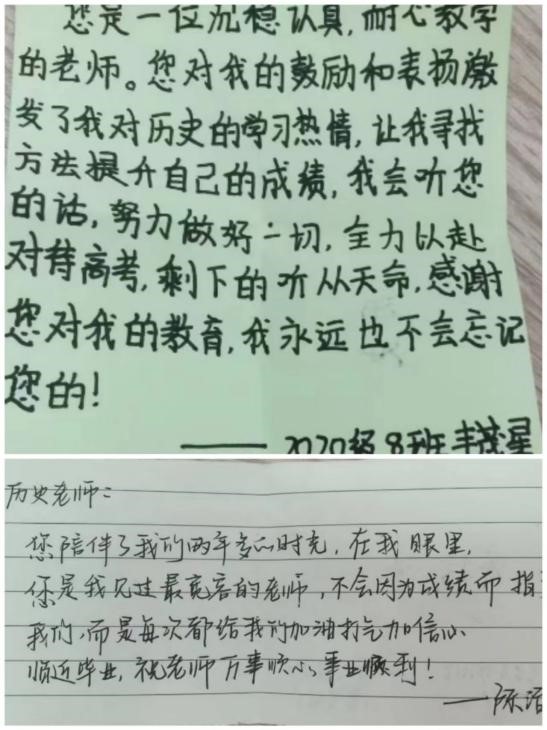 您是一位沉稳认真，耐心教学
的老师。您对我的鼓励和表扬激
发了我对历史的学习热情，让我寻找
方法提升自己的成绩，我会听您
的话，努力做好一切，全力以赴
对待高考，剩下的听从天命，感谢
您对我的教育，我永远也不会忘记
您的！
——2020级8班丰茂星
历史老师：
您陪伴了我们两年多的时光，在我眼里，
您是我见过最宽容的老师，不会因为成绩而指
我们，而是每次都给我们加油打气加信心
临近毕业，祝老师万事顺心事业顺利！
——陈